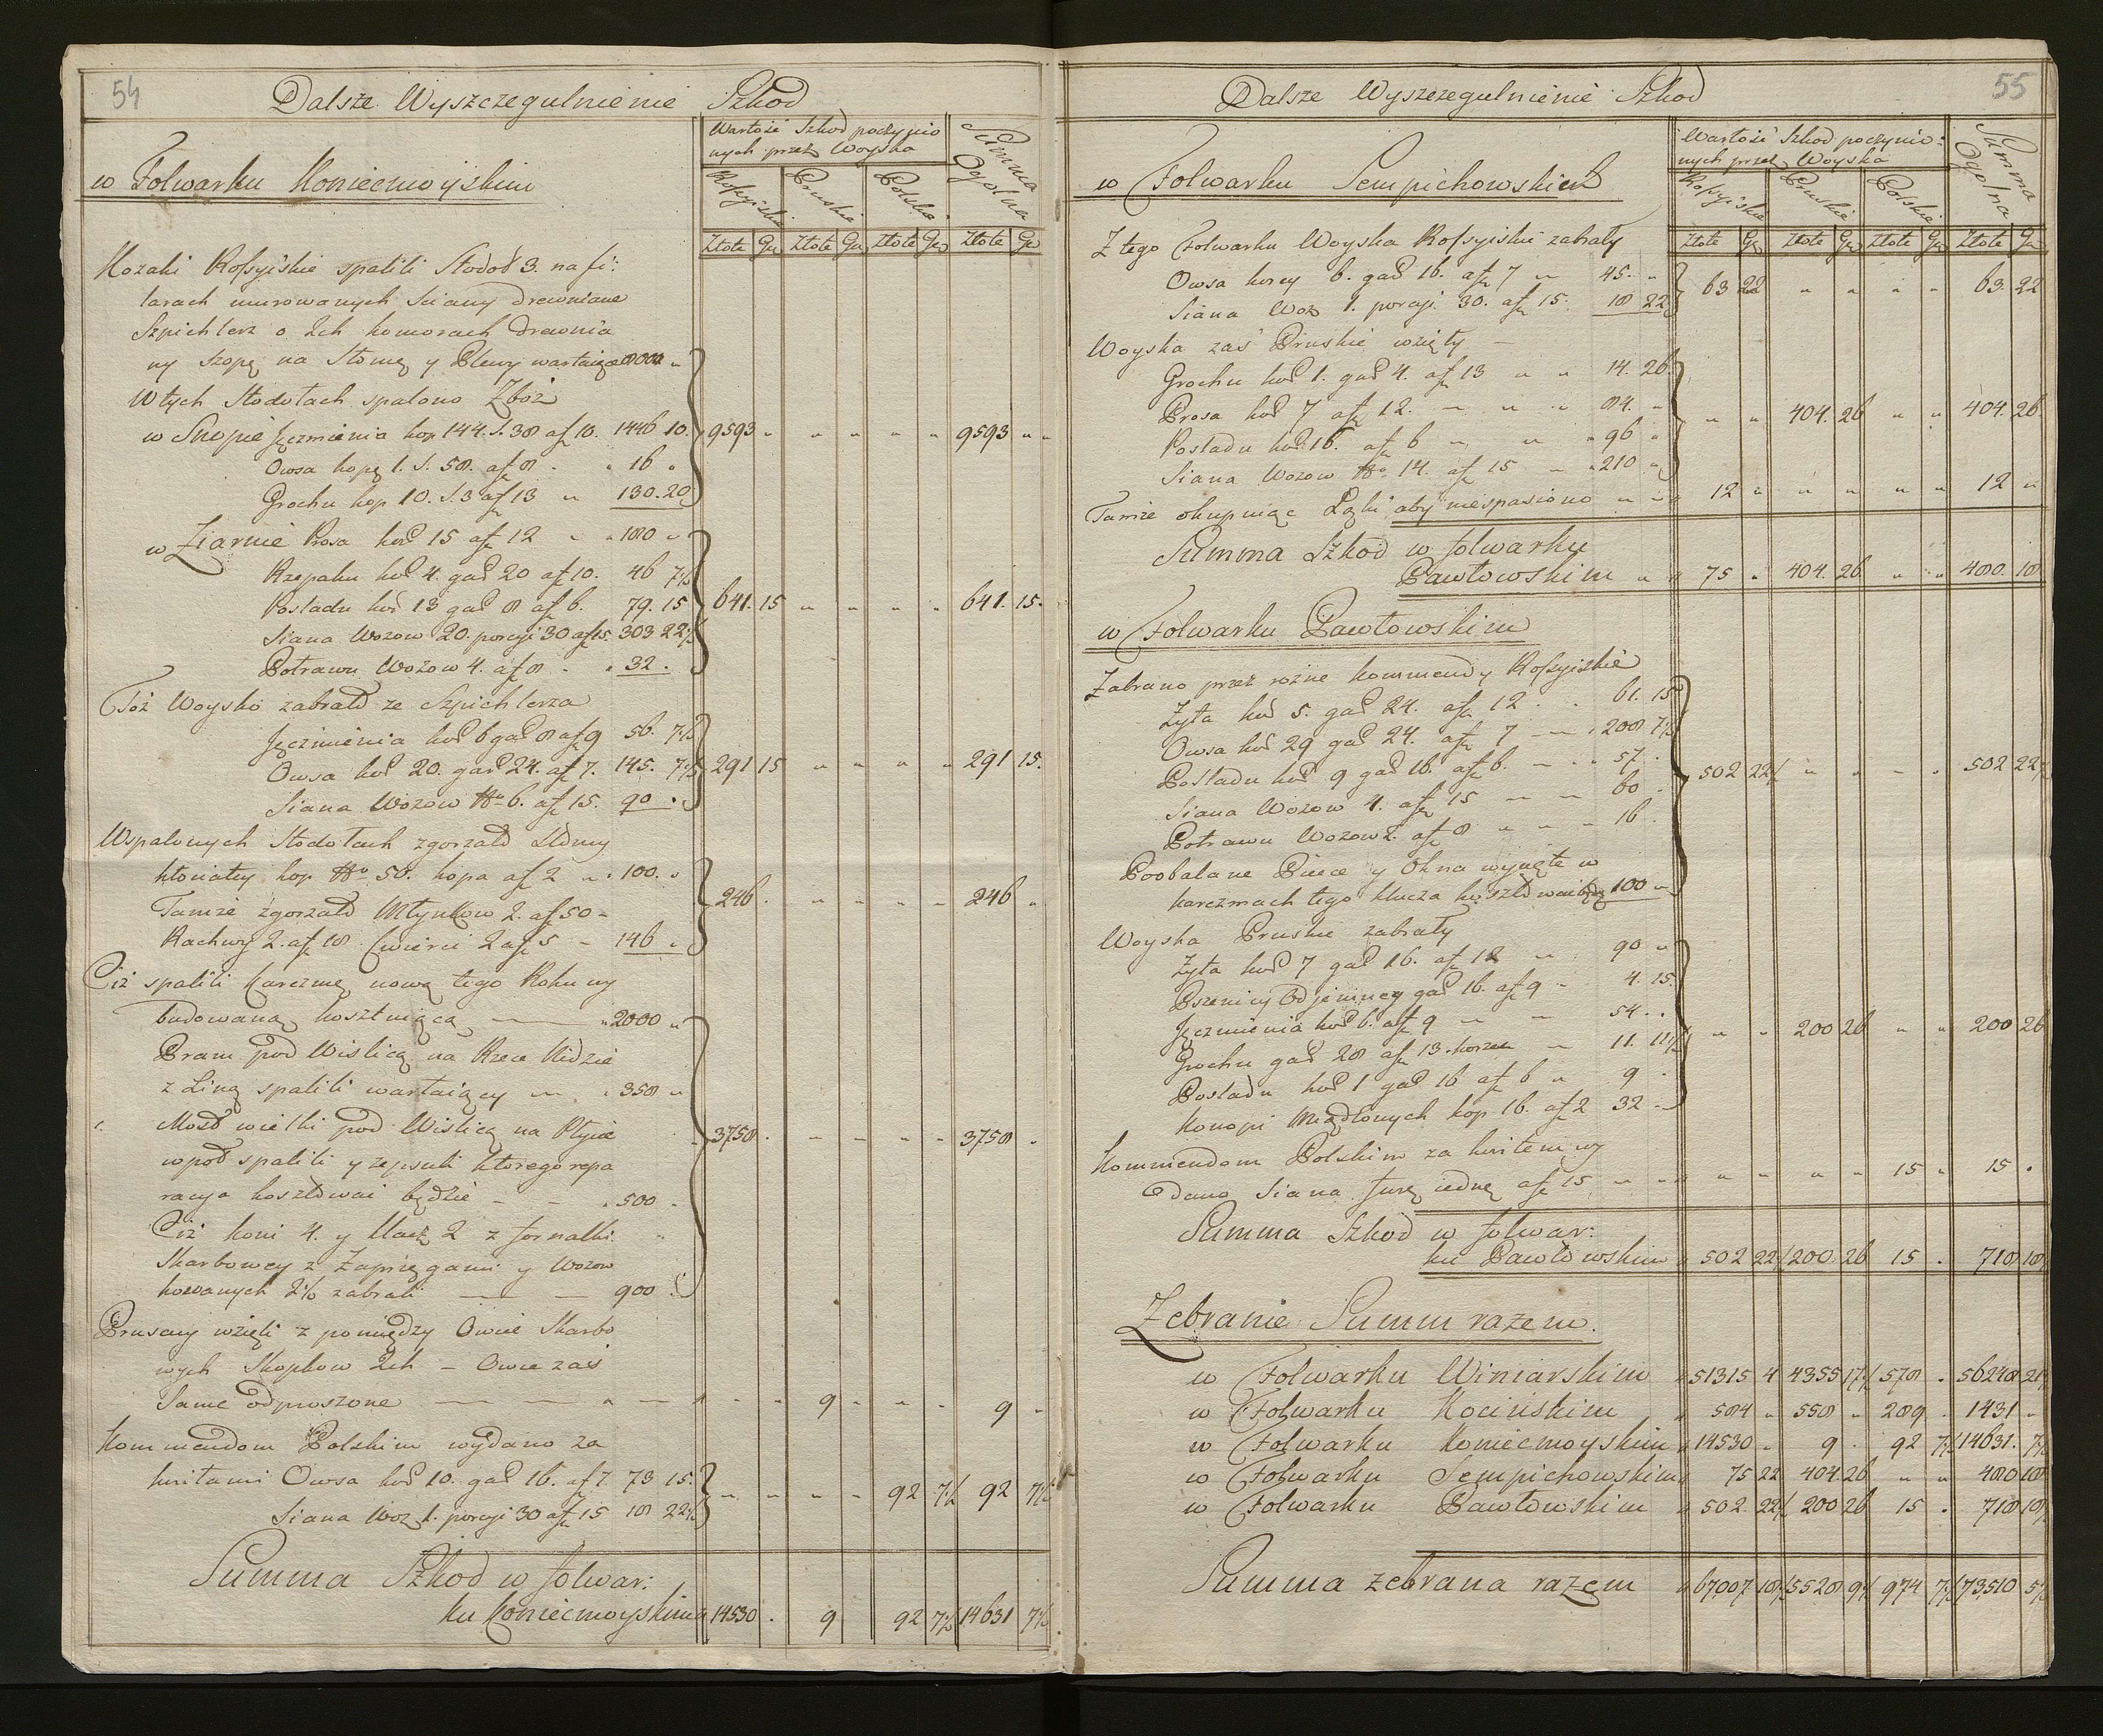 54
Dalsze Wyszczegulnienie Szkod
Wartość Szkod poczynio
nych przez Woyska
Summa Ogolna
w Folwarku Koniecmoyskim
Rossyiskie Pruskie Polskie
Złote Gr Złote Gr Złote Gr Złote Gr
Kozaki Rossyiskie spalili Stodoł 3. na fi:
larach murowanych Sciany drewniane
Szpichlerz o 2ch komorach drewnia
ny szopę na Słomę y Plewy wartaiące 8000 "
W tych Stodołach spalono Zboż
w Snopie Jęczmienia kop 144. S. 38 af 10. 1446 10. 9593 " " " " " 9593 " "
Owsa kopę 1. S. 58. af 8 . " 16 "
Grochu kop 10. S. 3 af 13 " 130. 20
w Ziarnie Prosa kor 15 af 12 " " 180 "
Rzepaku kor 4. gar 20 af 10. 46 7½
Posladu kor 13 gar 8 af 6. 79. 15 641. 15 " " " " 641. 15.
Siana Wozow 20. porcyi 30 af 15. 303 22½
Potrawu Wozow 4. af 8 . " 32 .
Toż Woysko zabrało ze Szpichlerza
Jęczmienia kor 6 gar 8 af 9 56. 7½
Owsa kor 20. gar 24. af 7. 145. 7½ 291 15 " " " " 291 15.
Siana Wozow No 6. af 15. 90 .
W spalonych Stodołach zgorzało Słomy
kłociatey kop No 50. kopa af 2 " " 100. "
Tamże zgorzało Młynkow 2. af 50 - 246 . " " " " 246 "
Rachwy 2. af 18 Cwierci 2 af 5 - 146 "
Ciż spalili Karczmę nową tego Roku wy
budowaną kosztuiącą — " 2000 "
Pram pod Wislicą na Rzece Nidzie
z Liną spalili wartaiący — " 358 "
Most wielki pod Wislicą na Ptycie 3758 . " " " " 3758 "
wpoł spalili y zepsuli ktorego repa
racya kosztować będzie - - " 500 "
Ciż koni 4. y klacz 2 z fornalki
Skarbowey z Zaprzęgami y Wozow
kowanych 2½ zabrali — — 900
Prusacy wzięli z pomiędzy Owiec Skarbo
wych Skopkow 2ch - Owce zaś
Same odproszone — — " — " - - 9 " - - 9 "
Kommendom Polskim wydano za
kwitami Owsa kor 10. gar 16. af 7. 73 15. " " " " 92 7½ 92 7½
Siana Woz 1. porcyi 30 af 15 18 22½
Summa Szkod w folwar:
ku Koniecmoyskim 14530 . 9 92 7½ 14631 7½
55
Dalsze Wyszczegulnienie Szkod
Wartość Szkod poczynio:
nych przez Woyska
Summa Ogolna
w Folwarku Sempichowskim
Rossyiskie Pruskie Polskie
Złote Gr Złote Gr Złote Gr Złote Gr
Z tego Folwarku Woyska Rossyiskie zabrały
Owsa korcy 6. gar 16. af 7 " 45. " 63 22 " " " " 63. 22
Siana Woz 1. porcyi 30. af 15. 18 22
Woyska zaś Pruskie wzięły —
Grochu kor 1. gar 4. af 13 " " 14. 26.
Prosa kor 7 af 12. — " " 84. " " " 404. 26 " " 404. 26.
Posladu kor 16. af 6 " " " 96 "
Siana Wozow No 14. af 15 — " 210 "
Tamże okupuiąc Łąki aby niespasiono " " 12 " " " " " 12 "
Summa Szkod w folwarku
Pawłowskim " " 75 " 404. 26 " " 480. 18
w Folwarku Pawłowskim
Zabrano przez rożne Kommendy Rossyiskie
Zyta kor 5. gar 24. af 12 . . 61. 15
Owsa kor 29 gar 24. af 7 — " 208 7½
Posladu kor 9 gar 16. af 6. — " 57 . 502 22½ " " " " 502 22½
Siana Wozow 4. af 15 — — 60 .
Potrawu Wozow 2. af 8 " " — 16 .
Poobalane Piece y Okna wyięte w
karczmach tego klucza kosztować będą 100 "
Woyska Pruskie zabrały
Zyta kor 7 gar 16. af 12 " . 90 "
Pszenicy Odjeminey gar 16. af 9 - 4. 15.
Jęczmienia kor 6. af 9 — — 54 . . " " 200 26 " " 200 26
Grochu gar 28 af 13. korzec — 11. 11½
Posladu kor 1 gar 16 af 6 " 9 .
Konopi Międlonych kop 16. af 2 32 .
Kommendom Polskim za kwitem wy
dano Siana furę iednę af 15 " " " " " " " 15 " 15 .
Summa Szkod w folwar:
ku Pawłowskim " 502 22½ 200. 26 15 . 718 18½
Zebranie Summ razem.
w Folwarku Winiarskim " 51315 4 4355 17½ 578 . 56248 21½
w Folwarku Kocińskim " 584 " 558 " 289 . 1431 "
w Folwarku Koniecmoyskim " 14530 . 9 . 92 7½ 14631. 7½
w Folwarku Sempichowskim " 75 22 404. 26 " " 480 18
w Folwarku Pawłowskim " 502. 22½ 200 26 15 . 718 18½
Summa zebrana razem " 67007 18½ 5528 9½ 974 7½ 73510 5½